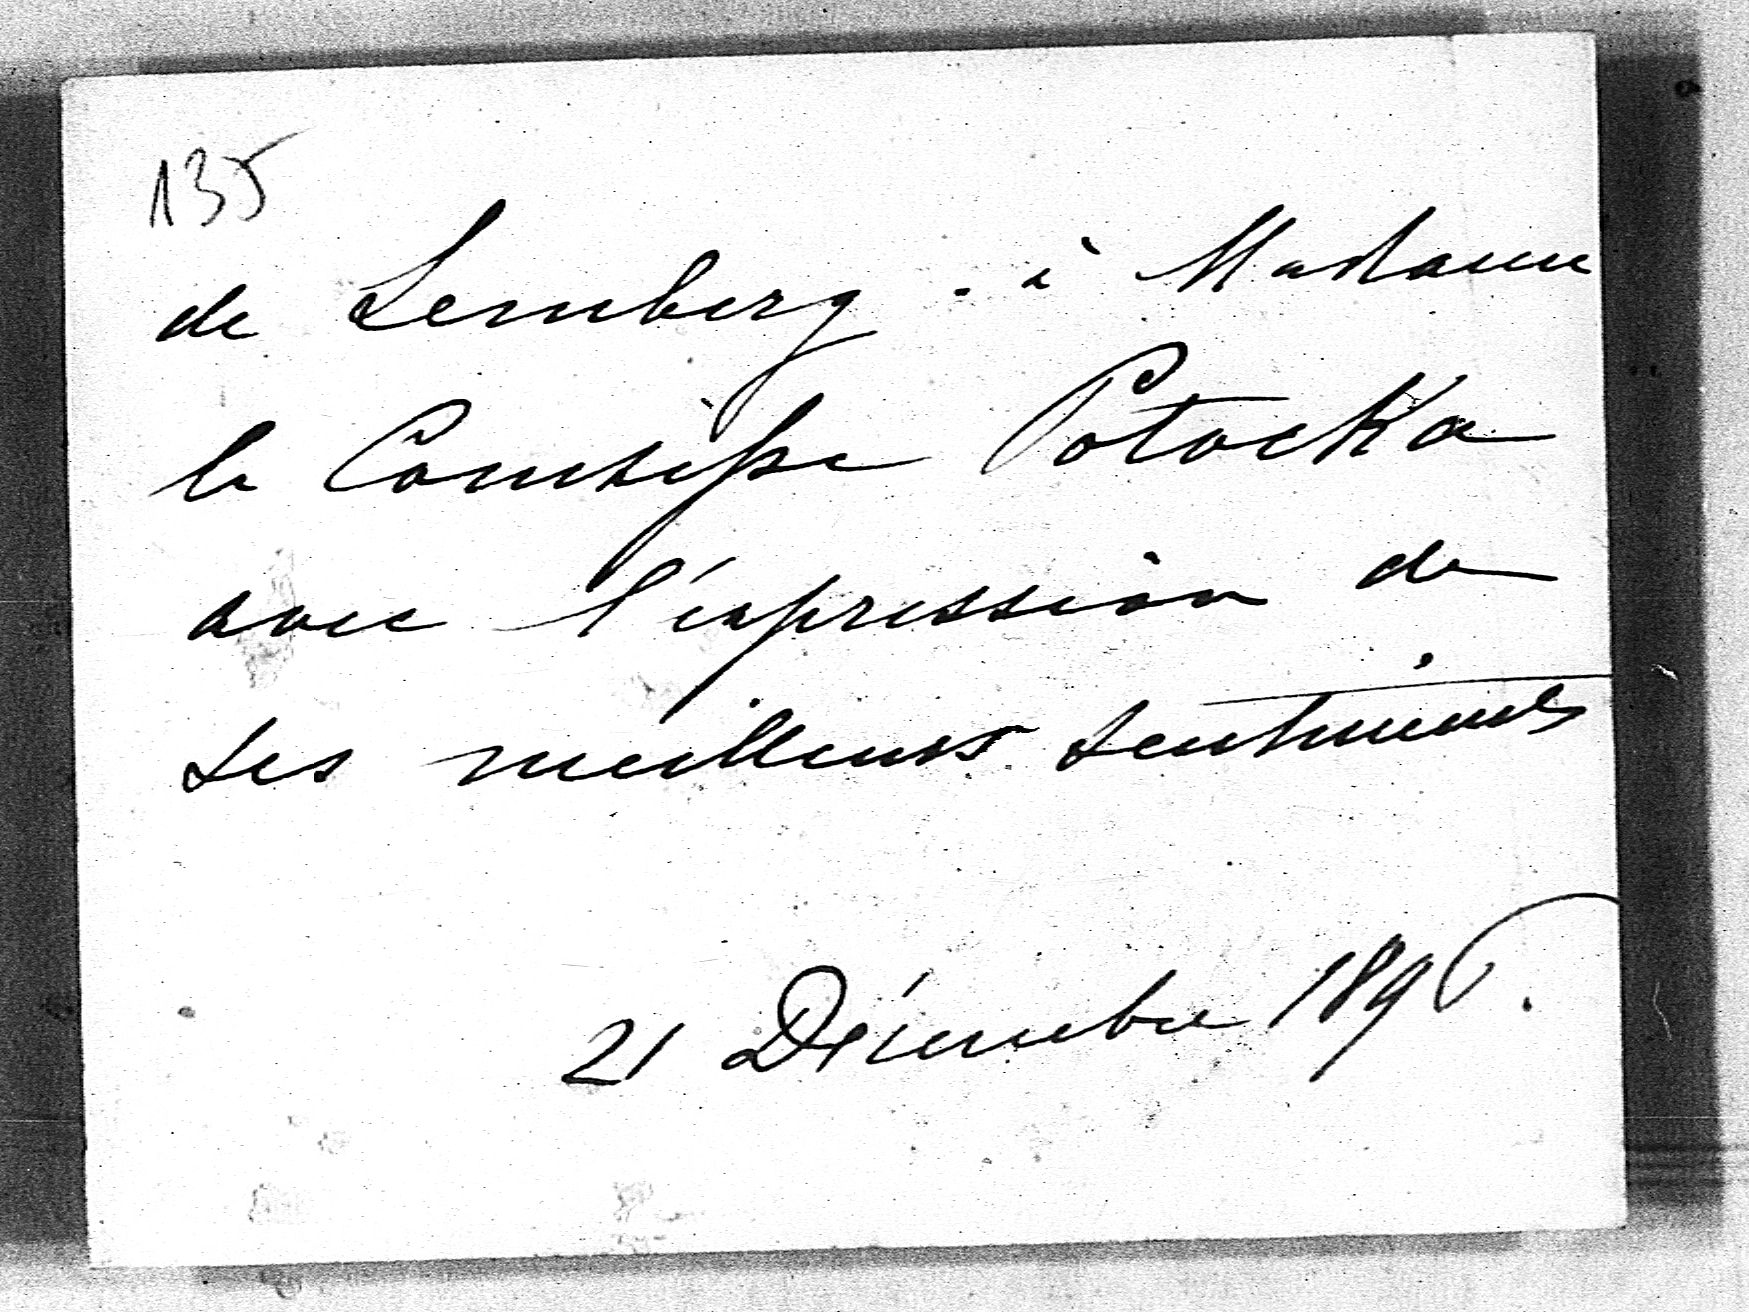 135
de Lemberg. à Madame
la Comtesse Potocka
avec l'expression de
ses meilleurs sentiments
21 Décembre 1896.